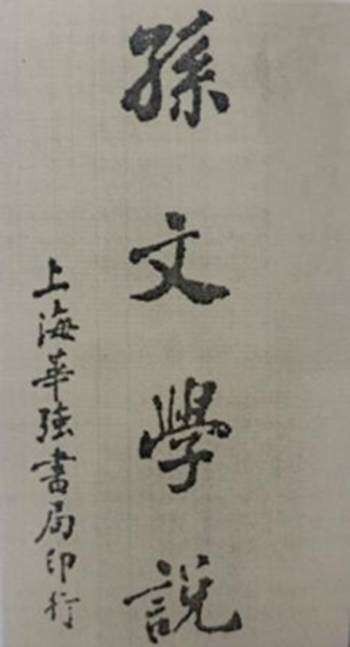 孫文學說
上海華強書局印行